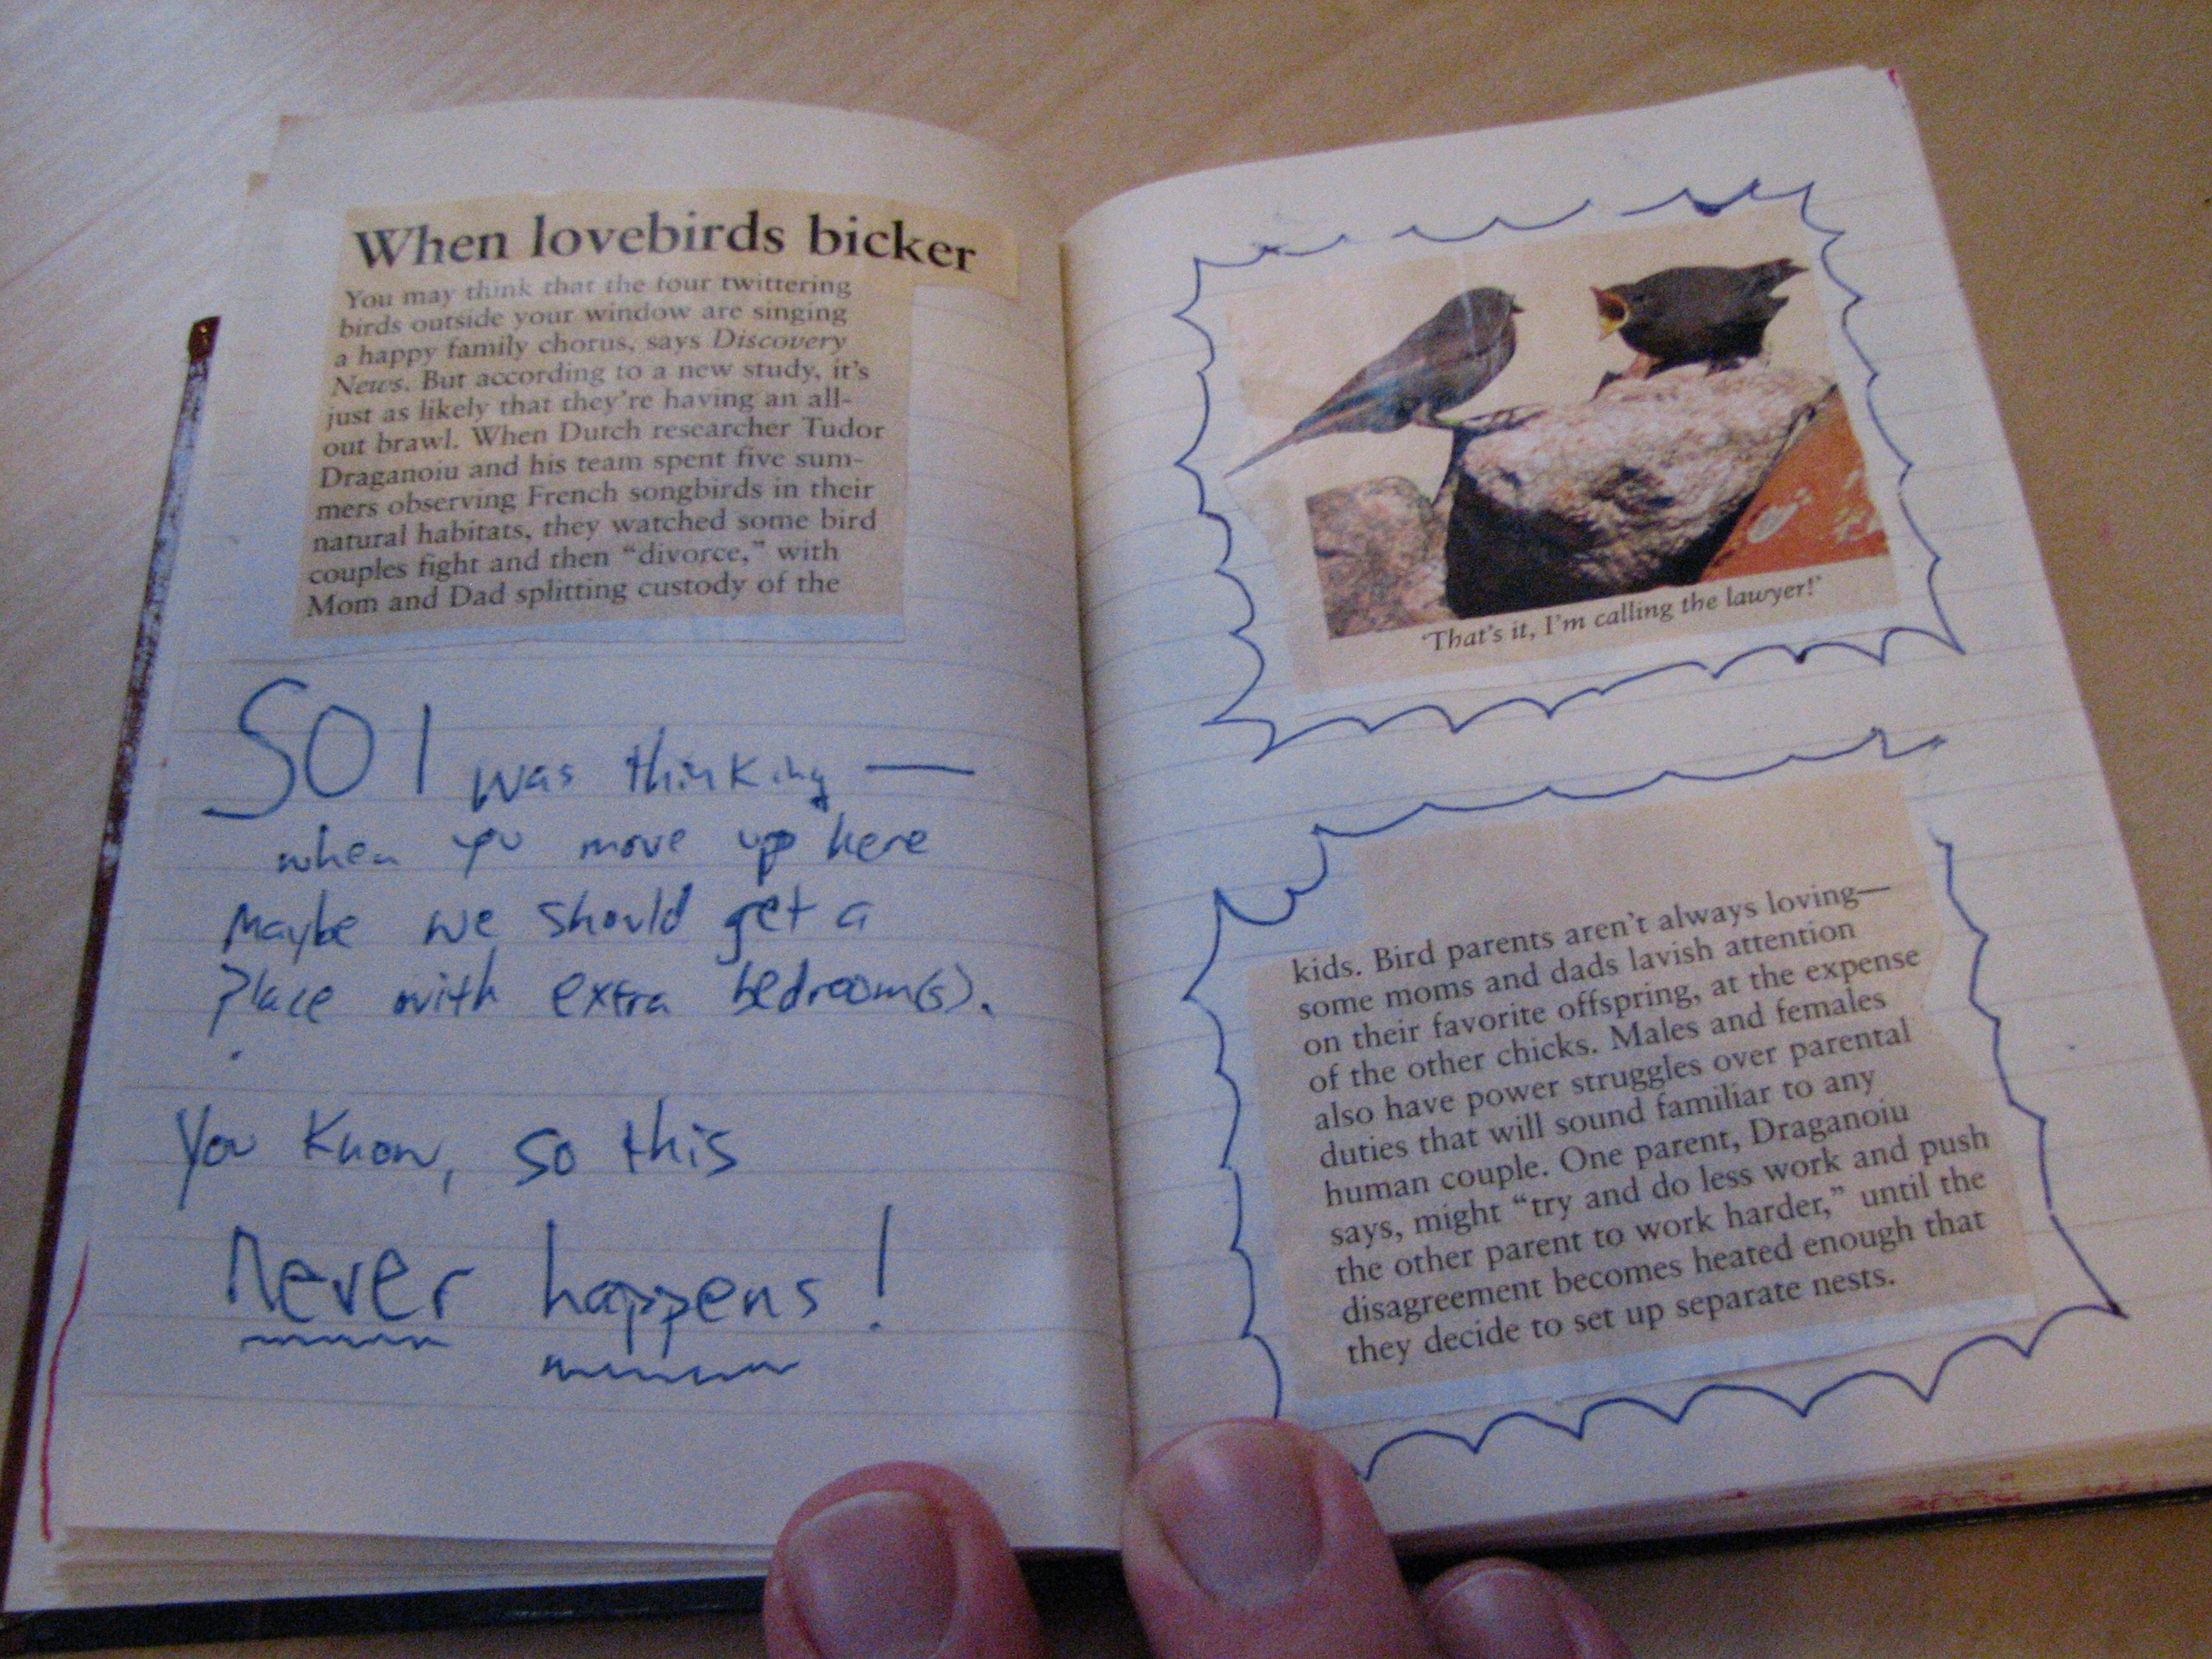 When lovebirds bicker
You may think that the four twittering
birds outside your window are singing
a happy family chorus, says Discovery
News. But according to a new study, it's
just as likely that they're having an all-
out brawl. When Dutch researcher Tudor
Draganoiu and his team spent five sum-
mers observing French songbirds in their
natural habitats, they watched some bird
couples fight and then "divorce," with
Mom and Dad splitting custody of the
SO I was thinking —
when you move up here
maybe we should get a
place with extra bedroom(s).
You know, so this
Never happens!
'That's it, I'm calling the lawyer!'
kids. Bird parents aren't always loving—
some moms and dads lavish attention
on their favorite offspring, at the expense
of the other chicks. Males and females
also have power struggles over parental
duties that will sound familiar to any
human couple. One parent, Draganoiu
says, might "try and do less work and push
the other parent to work harder," until the
disagreement becomes heated enough that
they decide to set up separate nests.